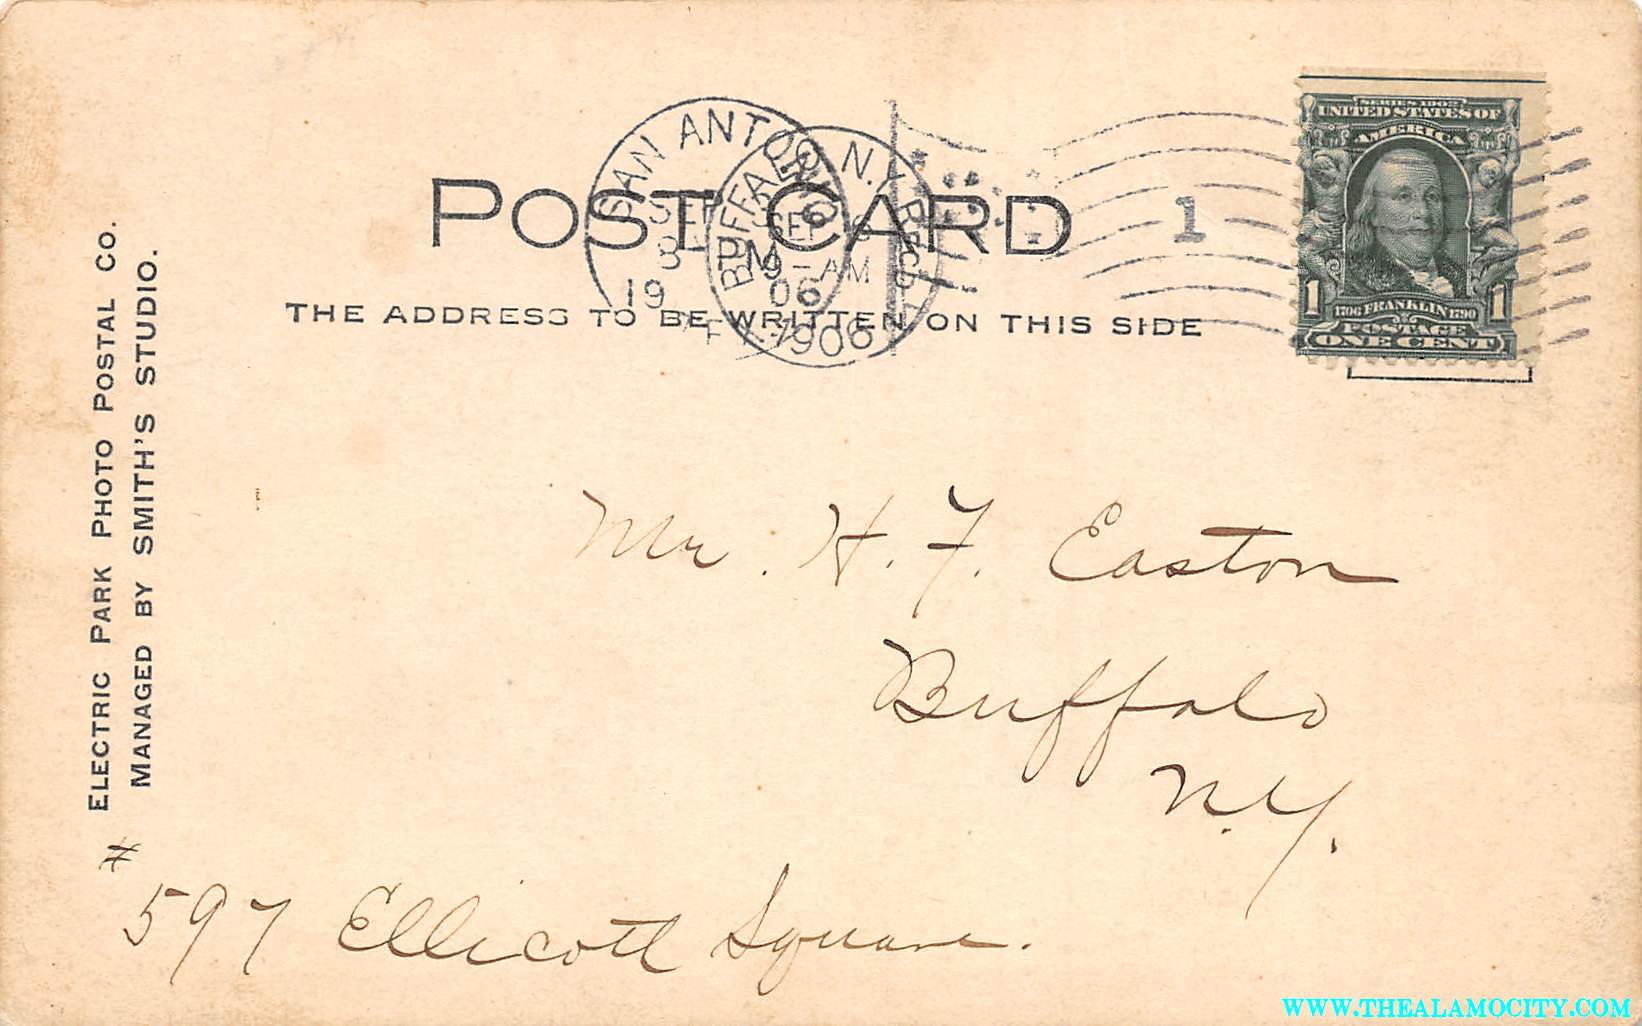 POST CARD
THE ADDRESS TO BE WRITTEN ON THIS SIDE
SAN ANTONIO
SEP 6
8 PM
1906
BUFFALO N.Y. REC'D
SEP 9
9-AM
1906
1
SERIES 1902
UNITED STATES OF
AMERICA
1 1706 FRANKLIN 1790 1
POSTAGE
ONE CENT
ELECTRIC PARK PHOTO POSTAL CO.
MANAGED BY SMITH'S STUDIO.
Mr. H. F. Easton
Buffalo
N.Y.
# 597 Ellicott Square.
WWW.THEALAMOCITY.COM